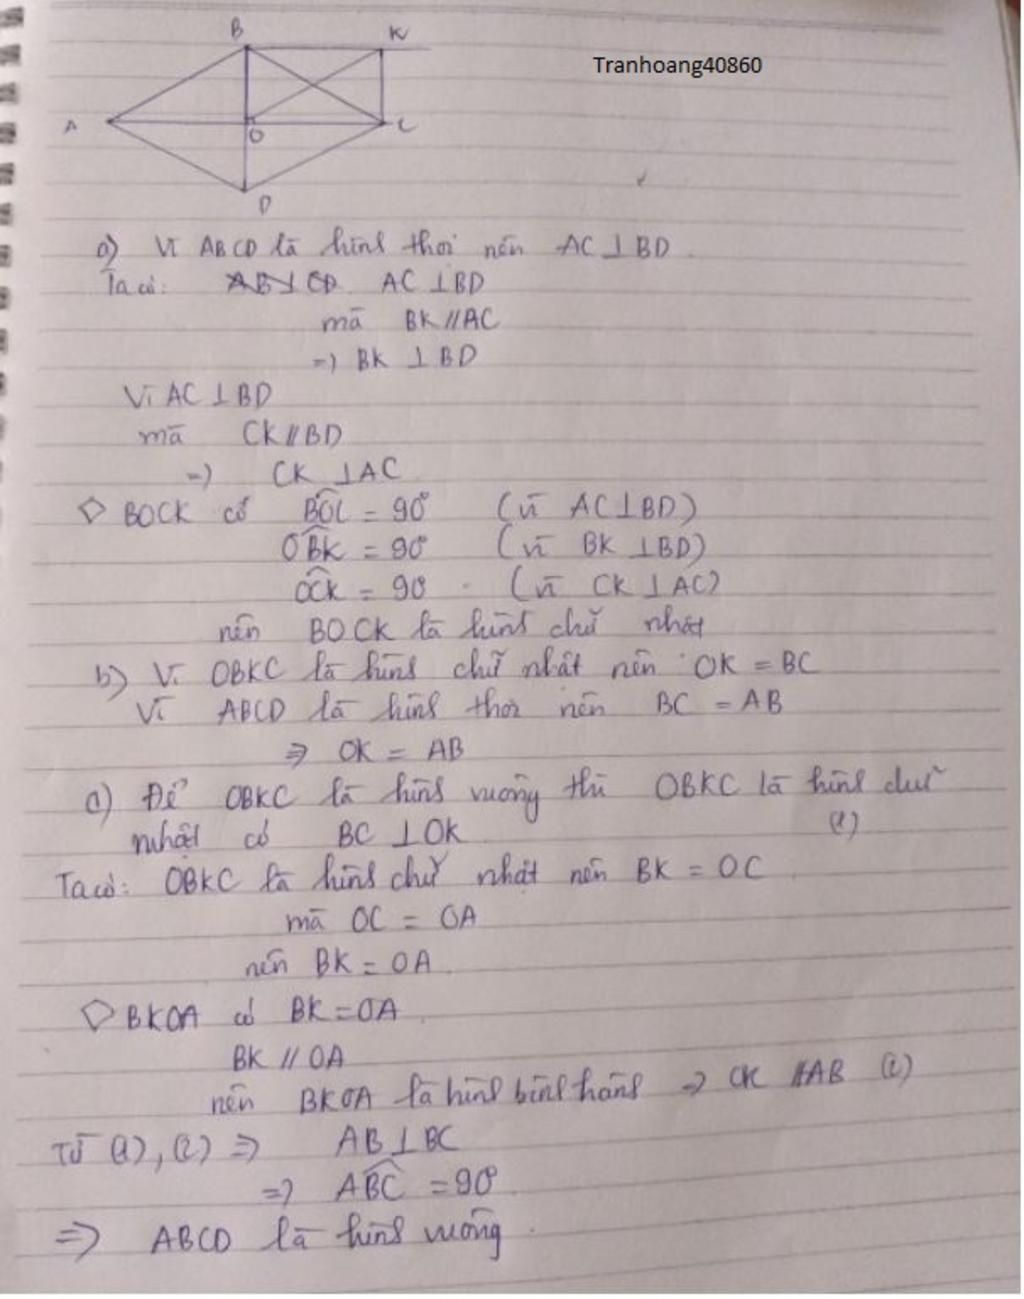 B
K
Tranhoang40860
A
O
C
D
a) Vì ABCD là hình thoi nên AC ⊥ BD
Ta có: AB ⊥ CD AC ⊥ BD
mà BK // AC
=> BK ⊥ BD
Vì AC ⊥ BD
mà CK // BD
=> CK ⊥ AC
◇ BOCK có BOC = 90° (vì AC ⊥ BD)
OBK = 90° (vì BK ⊥ BD)
OCK = 90° (vì CK ⊥ AC)
nên BOCK là hình chữ nhật
b) Vì OBKC là hình chữ nhật nên OK = BC
Vì ABCD là hình thoi nên BC = AB
=> OK = AB
c) Để OBKC là hình vuông thì OBKC là hình chữ
nhật có BC ⊥ OK (1)
Ta có: OBKC là hình chữ nhật nên BK = OC
mà OC = OA
nên BK = OA
◇ BKOA có BK = OA
BK // OA
nên BKOA là hình bình hành => OK // AB (2)
Từ (1), (2) => AB ⊥ BC
=> ABC = 90°
=> ABCD là hình vuông.